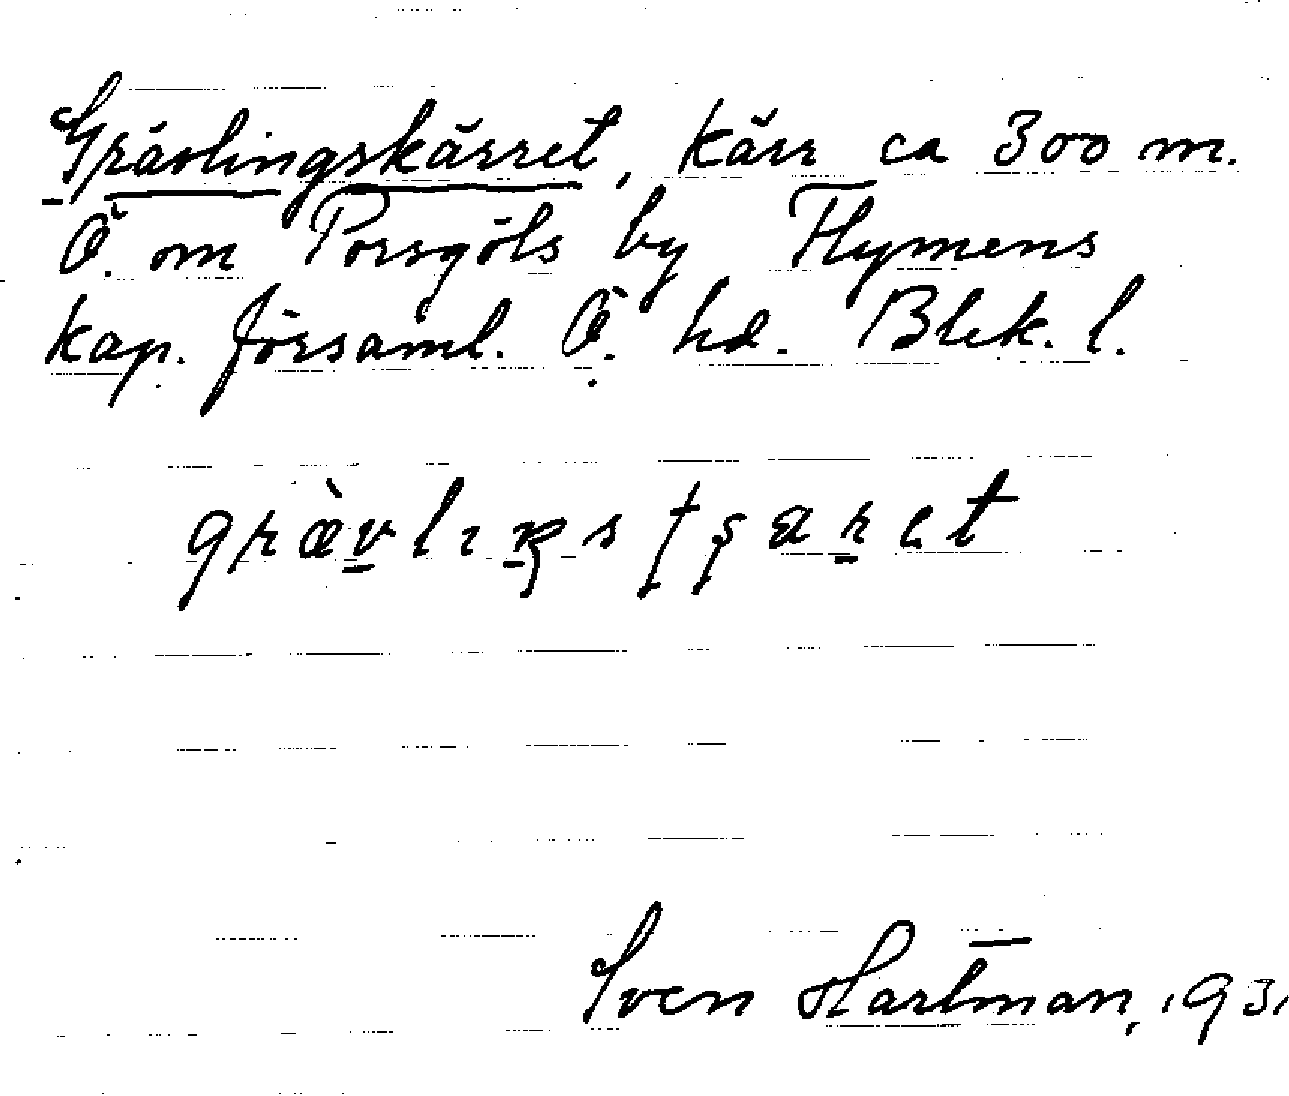 Grävlingskärret, kärr ca 300 m.
Ö. om Porsgöls by Flymens
kap. församl. Ö. hd. Blek. l.
græ̀vlıŋstʂaret
Sven Hartman, 1931